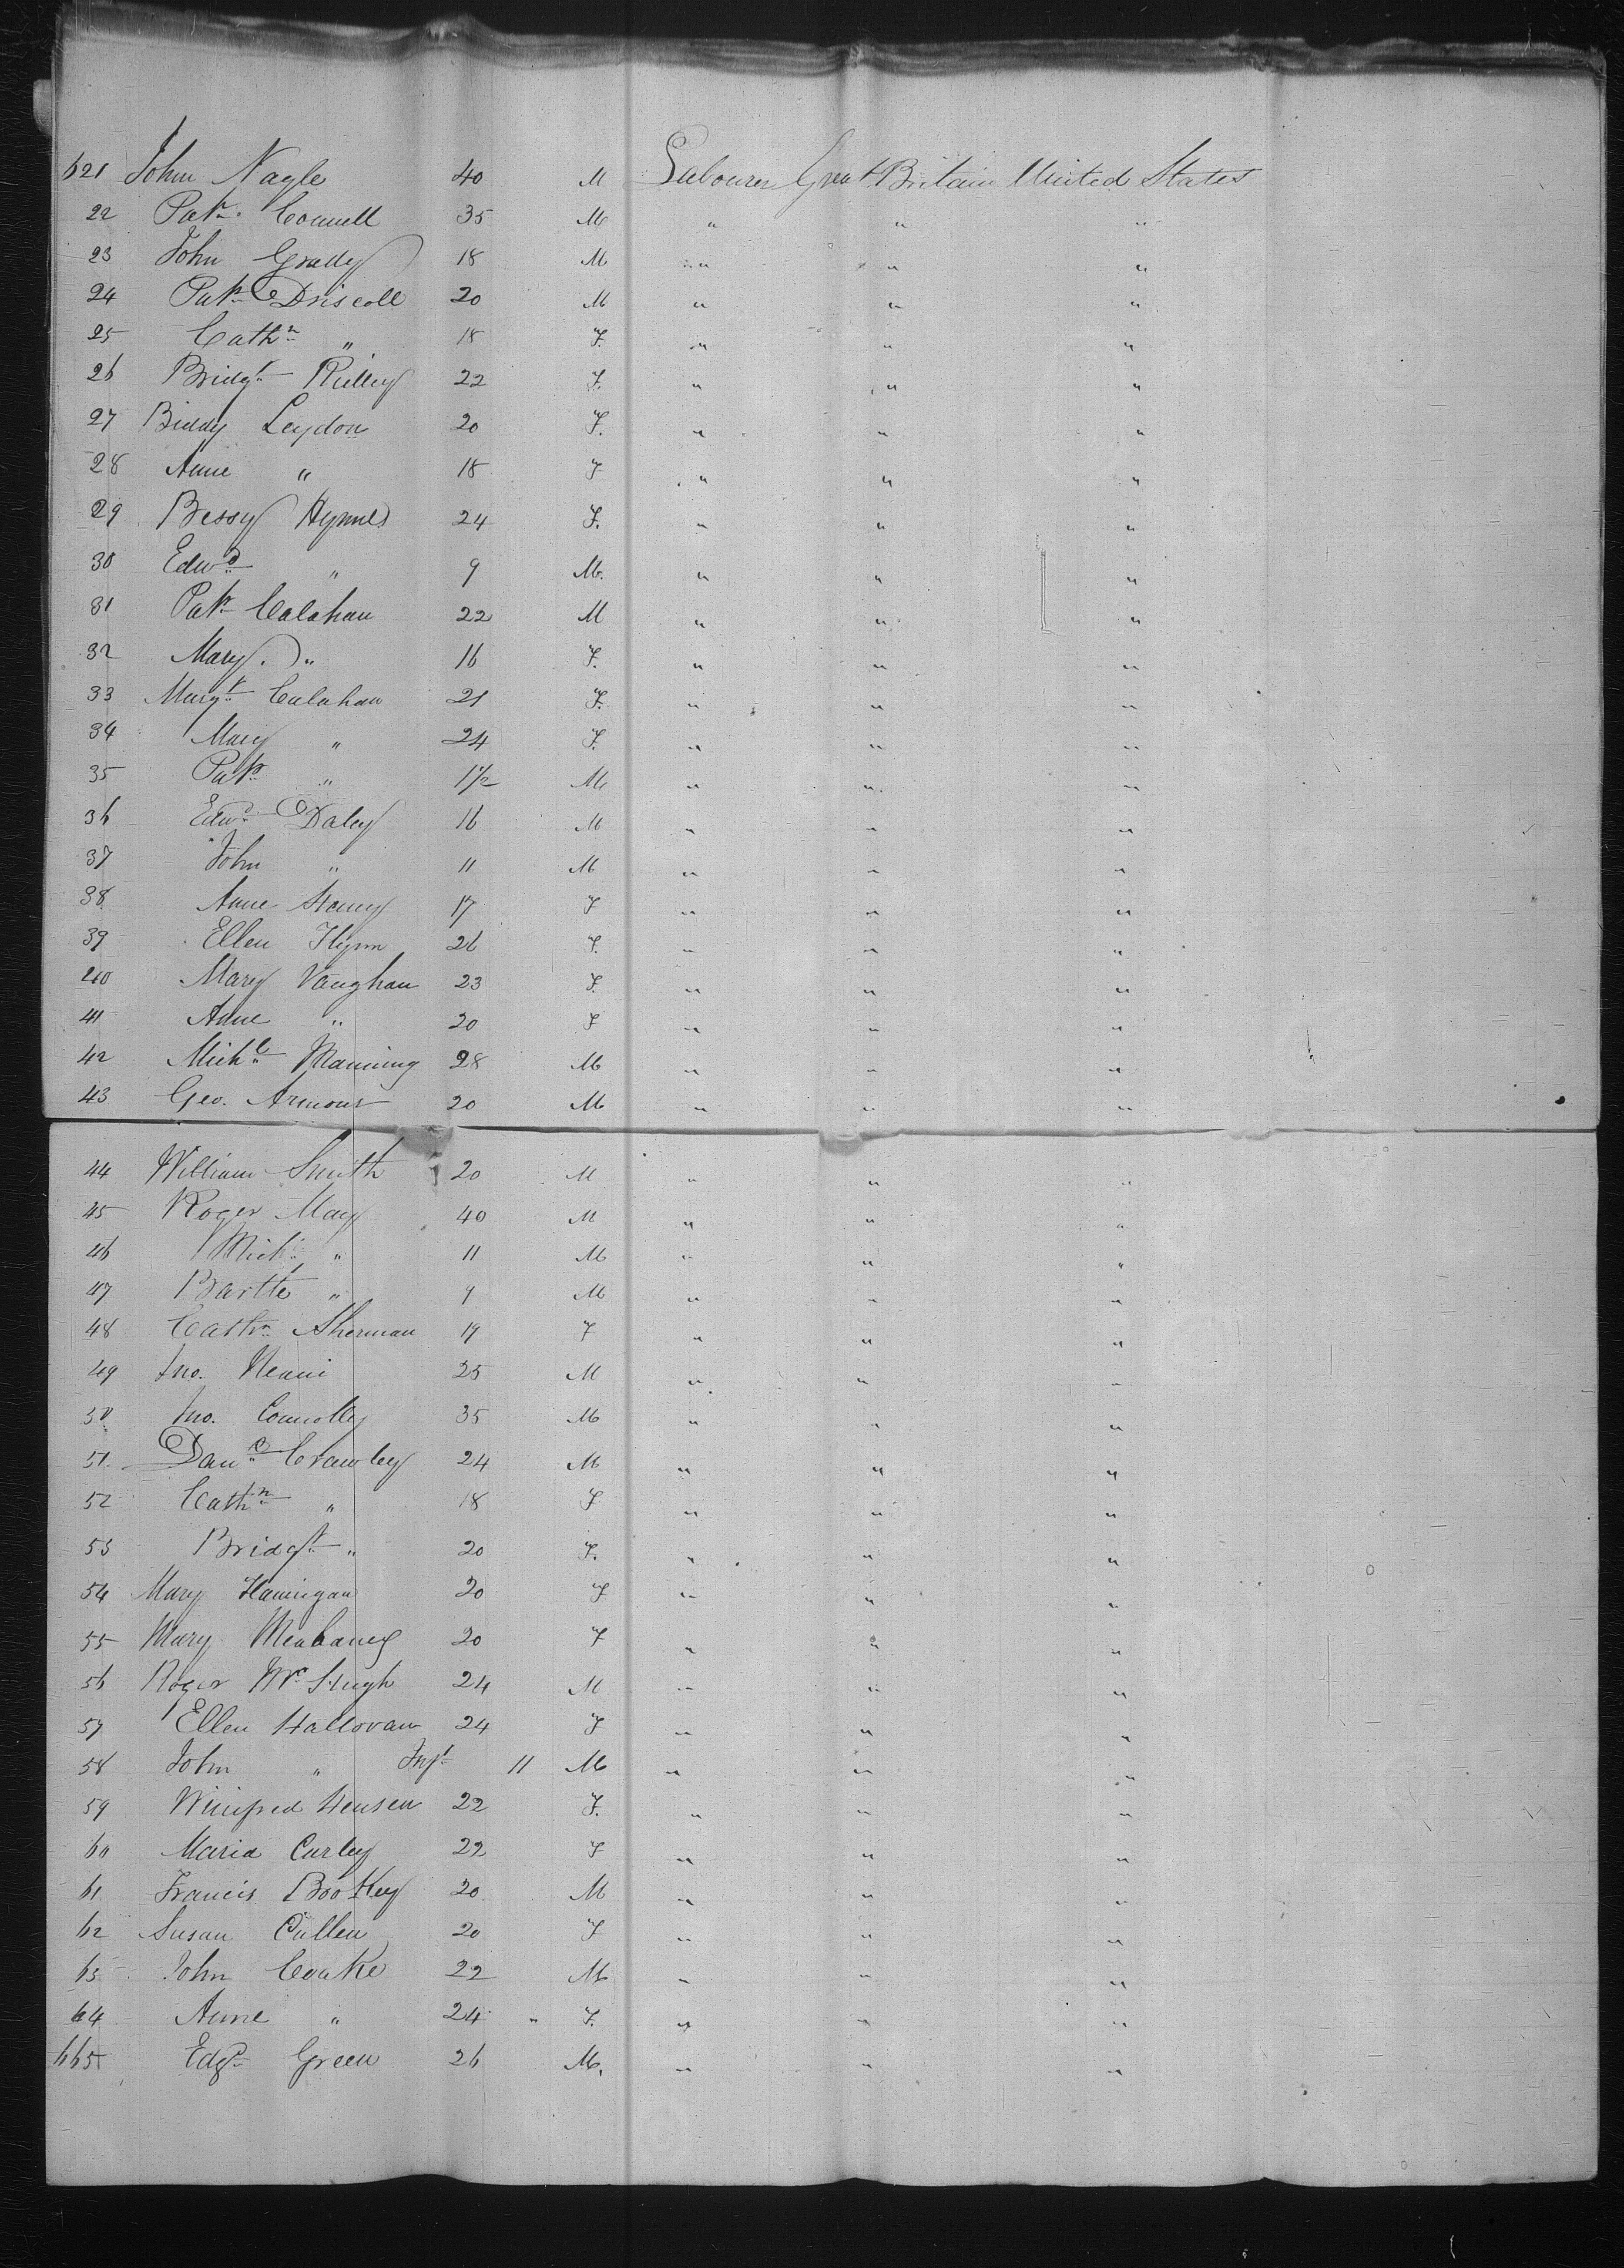 621 John Nagle 40 M Labourer Great Britain United States
22 Patk. Connell 35 M " " "
23 John Grady 18 M " " "
24 Patk Driscoll 20 M " " "
25 Cathn " 18 F. " " "
26 Bridgt Rielley 22 F. " " "
27 Biddy Leydon 20 F. " " "
28 Anne " 18 F " " "
29 Bessy Hynnes 24 F. " " "
30 Edwd " 9 M. " " "
31 Patk Calahan 22 M " " "
32 Mary. " 16 F. " " "
33 Margt Calahan 21 F. " " "
34 Mary " 24 F. " " "
35 Patk " 1 1/2 M " " "
36 Edwd Daley 16 M " " "
37 John " 11 M " " "
38 Anne 17 F " " "
39 Ellen Flynn 26 F. " " "
40 Mary Vaughan 23 F. " " "
41 Anne " 20 F " " "
42 Michl Manning 28 M " " "
43 Geo. Armour 20 M " " "
44 William Smith 20 M " " "
45 Roger May 40 M " " "
46 Michl " 11 M " " "
47 Bartte " 9 M " " "
48 Cathn Sherman 19 F " " "
49 Jno. 25 M " " "
50 Jno. Connolly 35 M " " "
51 Danl Crawley 24 M " " "
52 Cathn " 18 F " " "
53 Bridgt " 20 F. " " "
54 Mary Hannigan 20 F " " "
55 Mary 20 F " " "
56 Roger Mc Hugh 24 M " " "
57 Ellen Halloran 24 F " " "
58 John " Inft 11 M " " "
59 Winifred Hensen 22 F. " " "
60 Maria Curley 22 F " " "
61 Francis Bootkey 20 M " " "
62 Susan Cullen 20 F " " "
63 John Coake 22 M " " "
64 Anne " 24 " F. " " "
665 Green 26 M. " " "